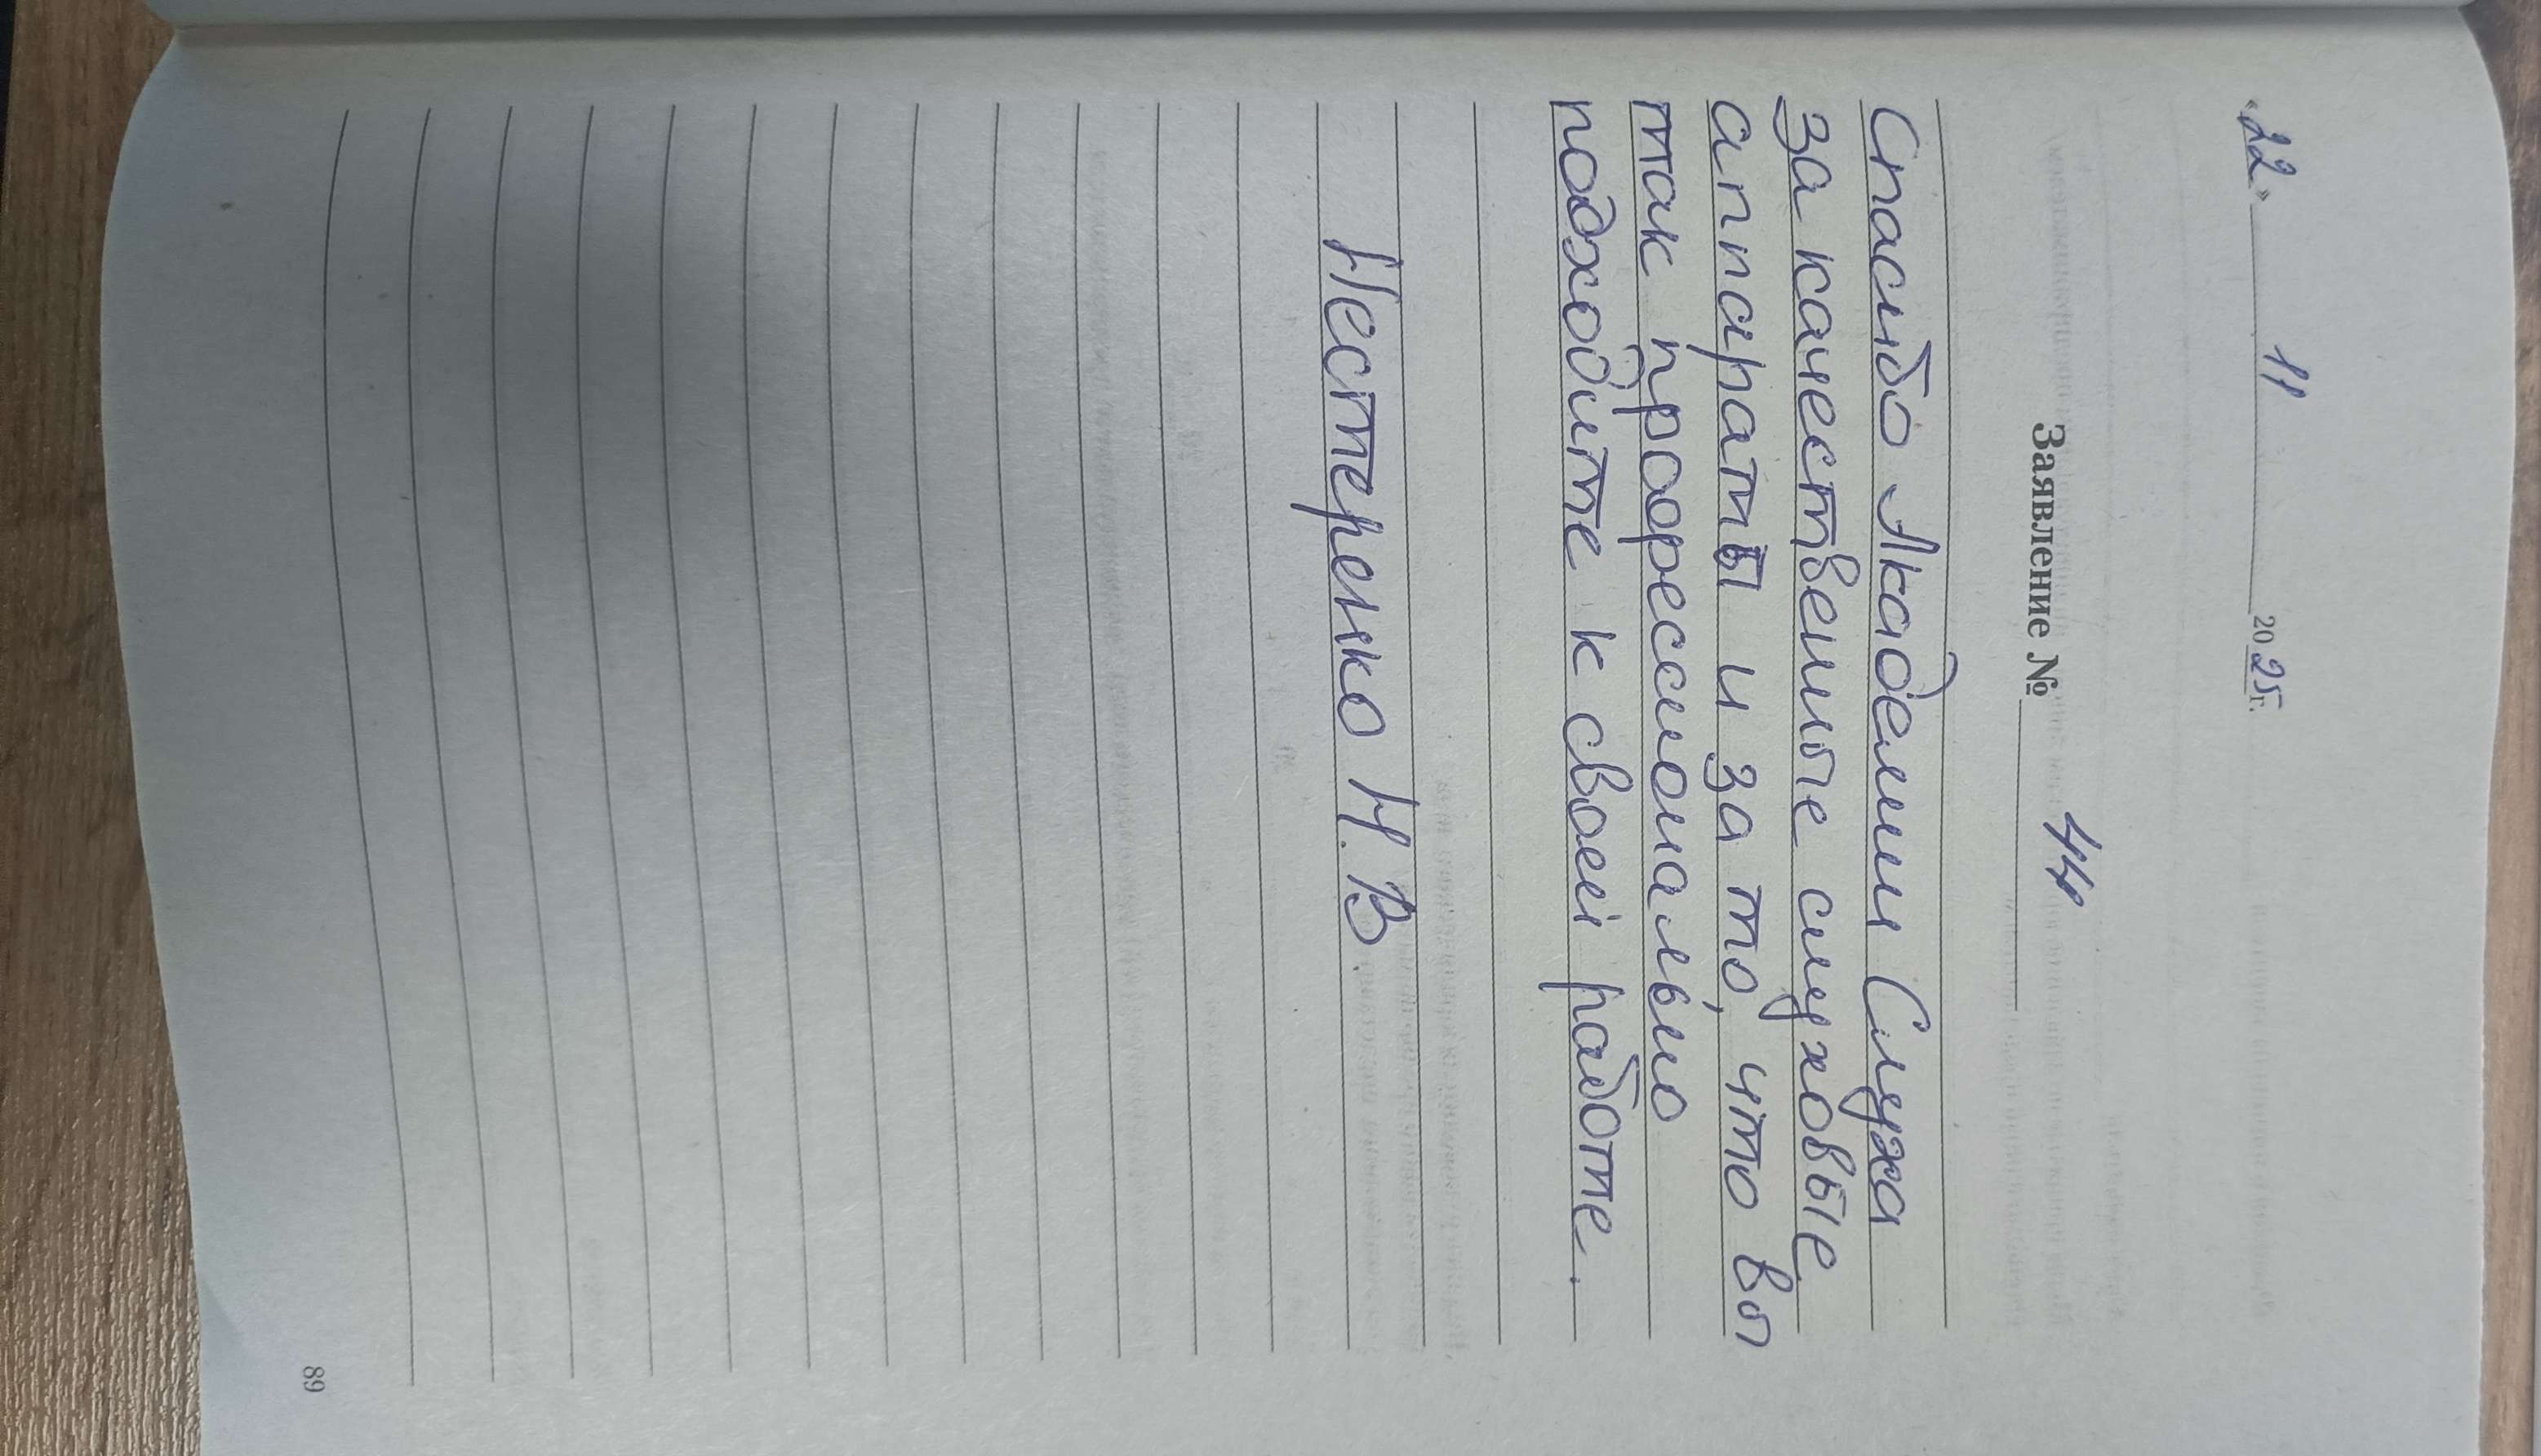 «22» 11 2025г.
Заявление № 44
Спасибо Академии Слуха
за качественные слуховые
аппараты и за то, что вы
так профессионально
подходите к своей работе.
Нестеренко Н.В.
89